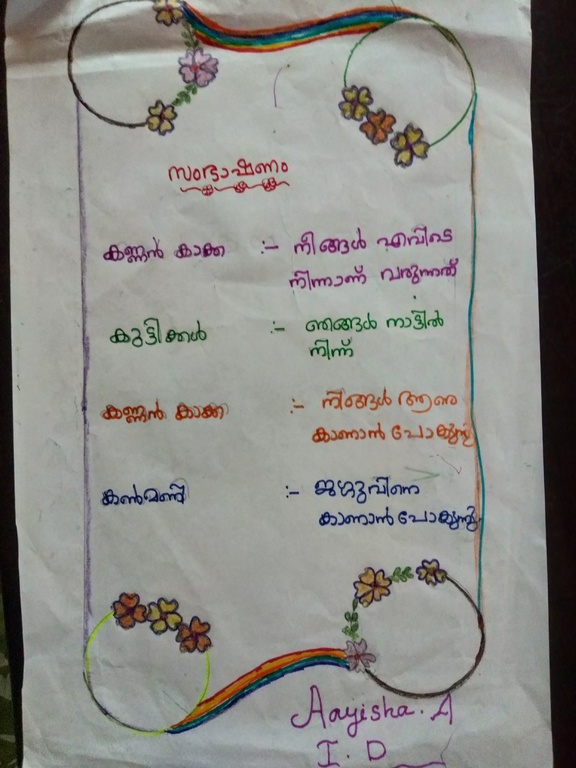 സംഭാഷണം
കണ്ണൻ കാക്ക :- നിങ്ങൾ എവിടെ
നിന്നാണ് വരുന്നത്
കുട്ടികൾ :- ഞങ്ങൾ നാട്ടിൽ
നിന്ന്
കണ്ണൻ കാക്ക :- നിങ്ങൾ ആരെ
കാണാൻ പോകുന്നു
കൺമണി :- ജഗ്ഗുവിനെ
കാണാൻ പോകുന്നു
Aayisha. A
I. D